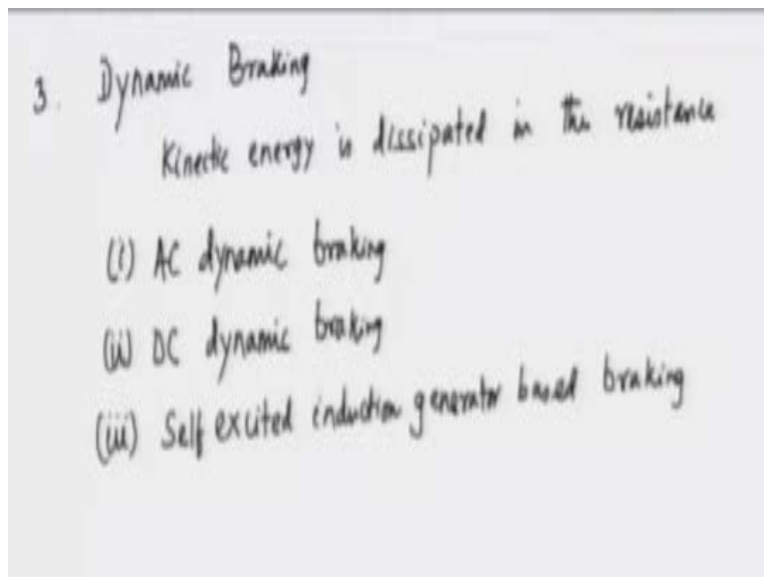 3. Dynamic Braking
Kinectic energy is dissipated in the resistance
(i) AC dynamic braking
(ii) DC dynamic braking
(iii) Self excited induction generator based braking